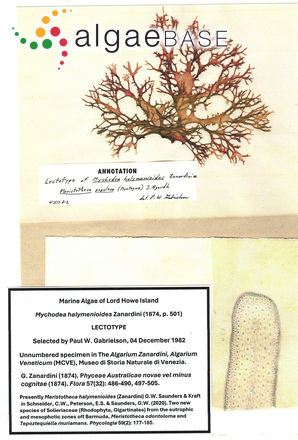 algaeBASE
ANNOTATION
Lectotype of Mychodea halymenioides Zanardini
Meristotheca papulosa (Montagne) J. Agardh
det. P. W. Gabrielson
Marine Algae of Lord Howe Island
Mychodea halymenioides Zanardini (1874, p. 501)
LECTOTYPE
Selected by Paul W. Gabrielson, 04 December 1982
Unnumbered specimen in The Algarium Zanardini, Algarium
Veneticum (MCVE), Museo di Storia Naturale di Venezia.
G. Zanardini (1874). Phyceae Australicae novae vel minus
cognitae (1874). Flora 57(32): 486-490, 497-505.
Presently Meristotheca halymenioides (Zanardini) G.W. Saunders & Kraft
in Schneider, C.W., Peterson, E.S. & Saunders, G.W. (2020). Two new
species of Solieriaceae (Rhodophyta, Gigartinales) from the euphotic
and mesophotic zones off Bermuda, Meristotheca odontoloma and
Tepoztequiella muriamans. Phycologia 59(2): 177-185.